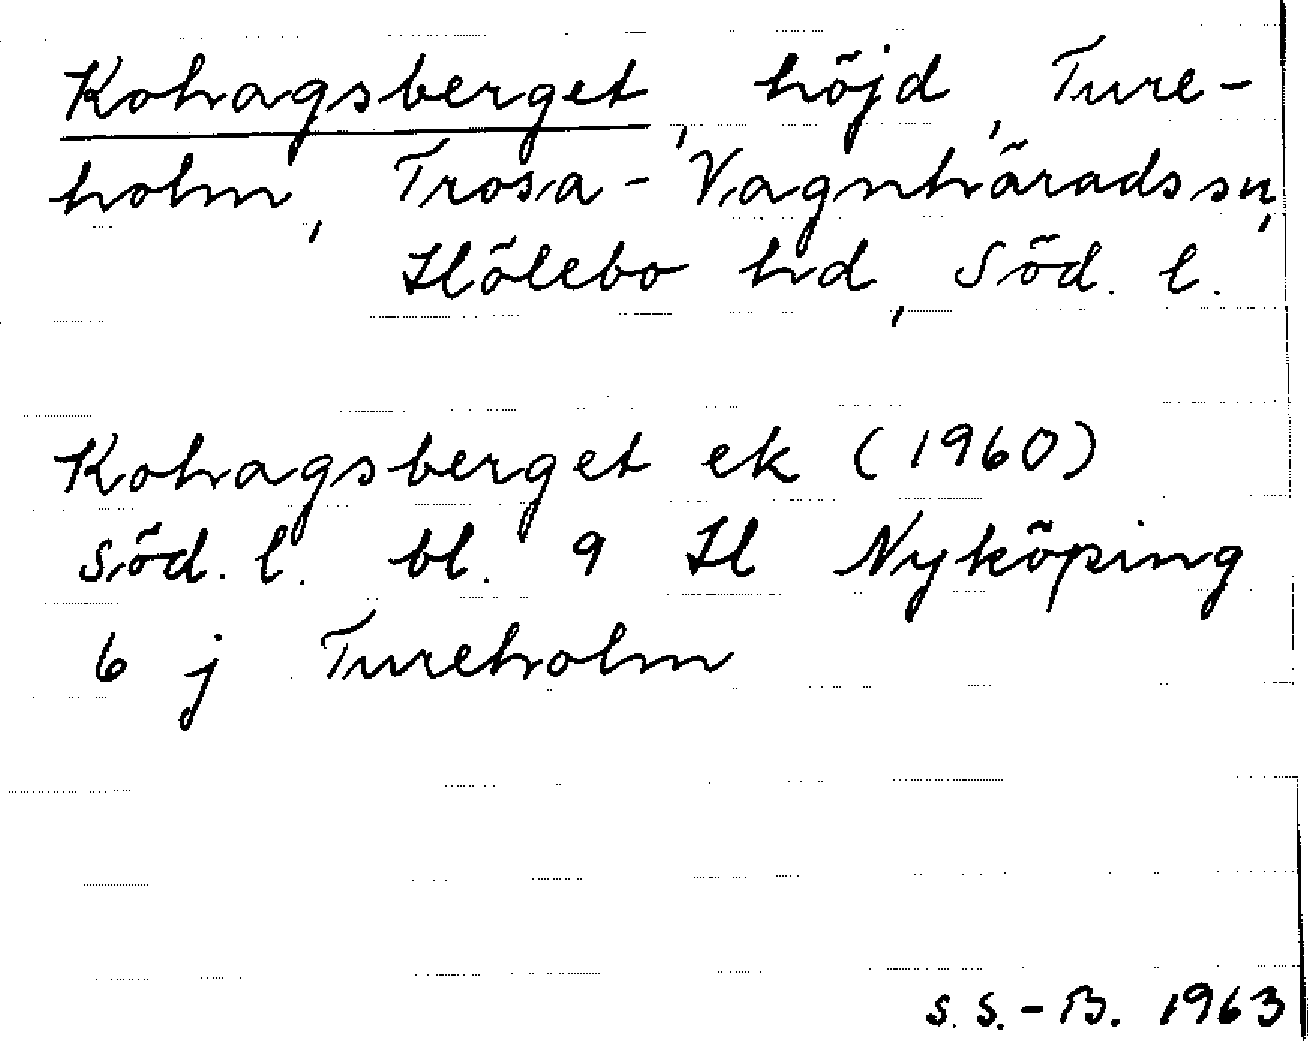 Kohagsberget, höjd, Ture-
holm, Trosa-Vagnhärads sn,
Hölebo hd, Söd. l.
Kohagsberget ek (1960)
Söd. l. bl. 9 H Nyköping
6 j Tureholm
S. S.-B. 1963